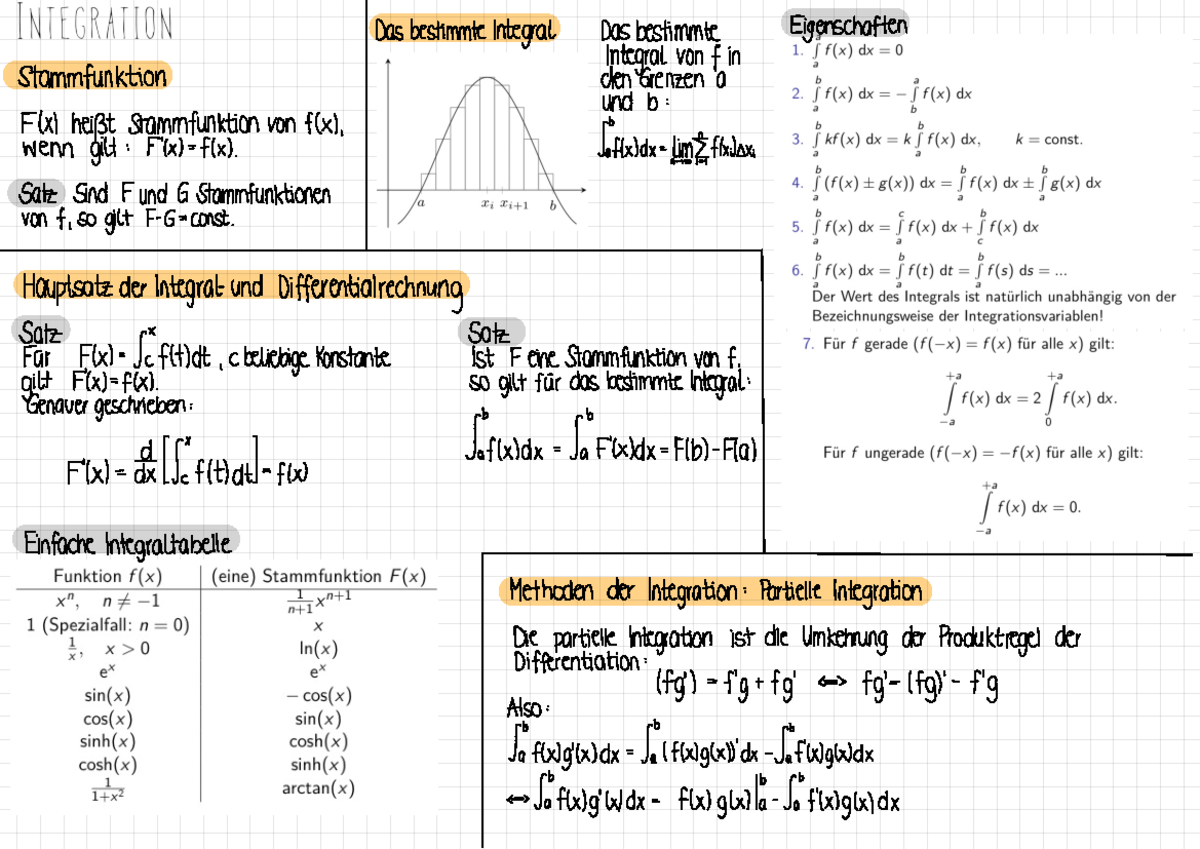 INTEGRATION
Stammfunktion
F(x) heißt Stammfunktion von f(x),
wenn gilt: F'(x) = f(x).
Satz Sind F und G Stammfunktionen
von f, so gilt F-G = const.
Das bestimmte Integral
a x_i x_{i+1} b
Das bestimmte
Integral von f in
den Grenzen a
und b:
∫_a^b f(x)dx = lim_{n→∞} ∑_{i=1}^n f(x_i)Δx_i
Eigenschaften
1. ∫_a^a f(x) dx = 0
2. ∫_a^b f(x) dx = − ∫_b^a f(x) dx
3. ∫_a^b kf(x) dx = k ∫_a^b f(x) dx, k = const.
4. ∫_a^b (f(x) ± g(x)) dx = ∫_a^b f(x) dx ± ∫_a^b g(x) dx
5. ∫_a^b f(x) dx = ∫_a^c f(x) dx + ∫_c^b f(x) dx
6. ∫_a^b f(x) dx = ∫_a^b f(t) dt = ∫_a^b f(s) ds = ...
Der Wert des Integrals ist natürlich unabhängig von der
Bezeichnungsweise der Integrationsvariablen!
7. Für f gerade (f(−x) = f(x) für alle x) gilt:
∫_{−a}^{+a} f(x) dx = 2 ∫_0^{+a} f(x) dx.
Für f ungerade (f(−x) = −f(x) für alle x) gilt:
∫_{−a}^{+a} f(x) dx = 0.
Hauptsatz der Integral- und Differentialrechnung
Satz
Für F(x) = ∫_c^x f(t)dt, c beliebige Konstante
gilt F'(x) = f(x).
Genauer geschrieben:
F'(x) = d/dx [∫_c^x f(t)dt] = f(x)
Satz
Ist F eine Stammfunktion von f,
so gilt für das bestimmte Integral:
∫_a^b f(x)dx = ∫_a^b F'(x)dx = F(b) - F(a)
Einfache Integraltabelle
Funktion f(x) (eine) Stammfunktion F(x)
x^n, n ≠ −1 1/(n+1) x^{n+1}
1 (Spezialfall: n = 0) x
1/x, x > 0 ln(x)
e^x e^x
sin(x) − cos(x)
cos(x) sin(x)
sinh(x) cosh(x)
cosh(x) sinh(x)
1/(1+x²) arctan(x)
Methoden der Integration: Partielle Integration
Die partielle Integration ist die Umkehrung der Produktregel der
Differentiation:
(fg') = f'g + fg' ⟺ fg' = (fg)' - f'g
Also:
∫_a^b f(x)g'(x)dx = ∫_a^b (f(x)g(x))'dx - ∫_a^b f'(x)g(x)dx
⟺ ∫_a^b f(x)g'(x)dx = f(x)g(x)|_a^b - ∫_a^b f'(x)g(x)dx